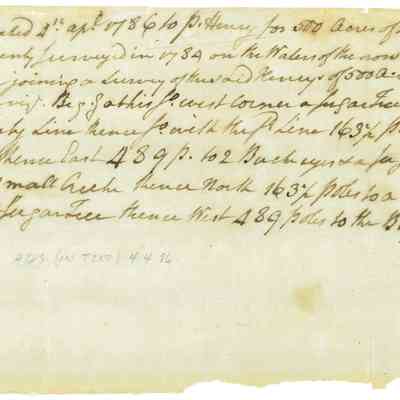 ated 4th apl 1786 to P. Henry for 500 Acres of
enty Surveyed in 1784 on the Waters of the
joining a Survey of the said Henrys of 500 ac
viz. Beg.g at his So. west corner a Sugar Tree
by Line thence So. with the sd Line 163½ p
thence East 489 p. to 2 Buckeyes & a Sug
small Creeke thence North 163½ poles to a
Sugar Tree thence West 489 poles to the B
ADS. (IN TEXT) 4.4.86